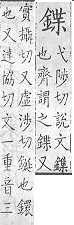 鍱
弋涉切說文鏶
也齊謂之鍱又
實攝切又虛涉切鋌也鐶
也又達協切文一重音三